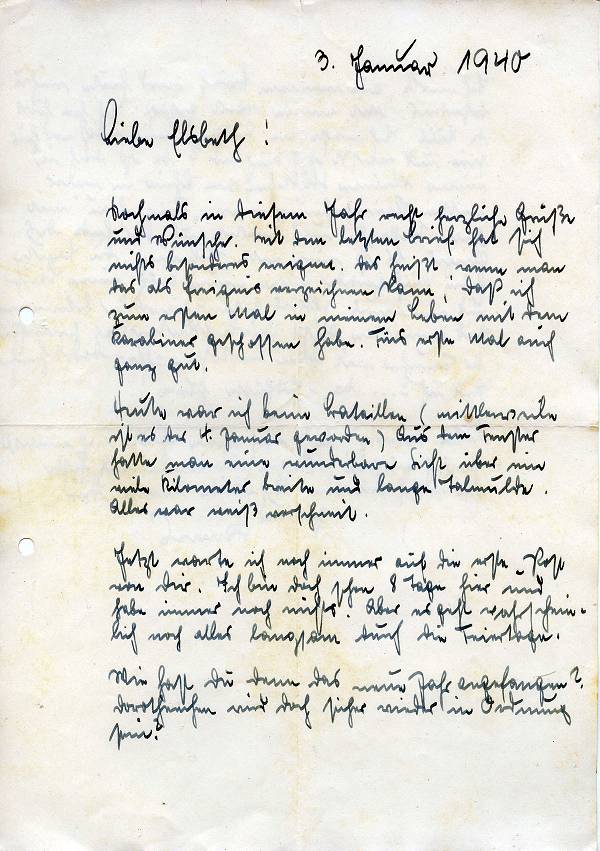 3. Januar 1940
Liebe Elsbeth!
Nochmals in diesem Jahr recht herzliche Grüße
und Wünsche. Seit dem letzten Brief hat sich
nichts besonderes ereignet. Das heißt, wenn man
das als Ereignis verzeichnen kann, daß ich
zum ersten Mal in meinem Leben mit dem
Karabiner geschossen habe. Fürs erste Mal auch
ganz gut.
Heute war ich beim Bataillon (mittlerweile
ist es der 4. Januar geworden) Aus dem Fenster
hatte man eine wunderbare Sicht über eine
viele Kilometer breite und lange Talmulde.
Alles war weiß verschneit.
Jetzt warte ich noch immer auf die erste Post
von Dir. Ich bin doch schon 8 Tage hier und
habe immer noch nichts. Aber es geht wahrschein-
lich noch alles langsam durch die Feiertage.
Wie hast Du denn das neue Jahr angefangen?
Dorotheechen wird doch sicher wieder in Ordnung
sein?